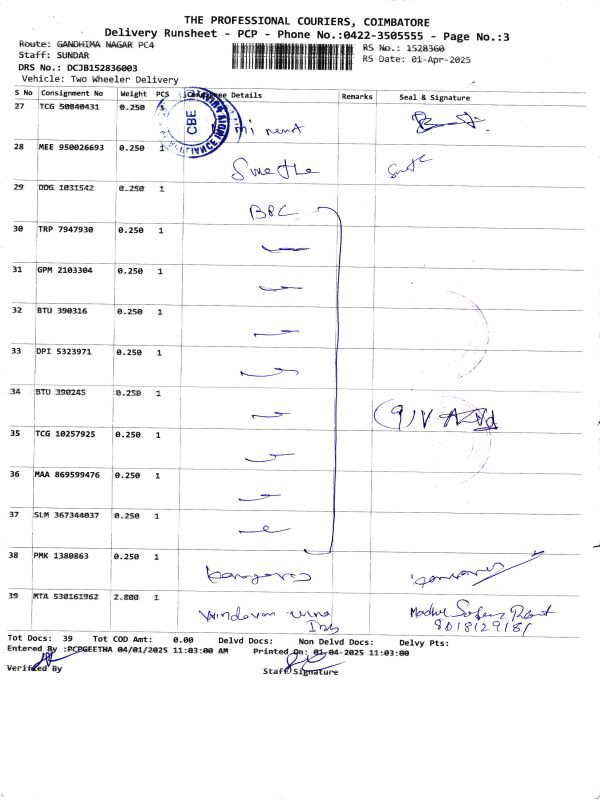 THE PROFESSIONAL COURIERS, COIMBATORE
Delivery Runsheet - PCP - Phone No.:0422-3505555 - Page No.:3
Route: GANDHIMA NAGAR PC4
RS No.: 1528360
Staff: SUNDAR
RS Date: 01-Apr-2025
DRS No.: DCJB152836003
Vehicle: Two Wheeler Delivery
S No Consignment No Weight PCS Details Remarks Seal & Signature
27 TCG 50840431 0.250
CBE
28 MEE 950026693 0.250 1
Swetha
29 DDG 1031542 0.250 1
BPC
30 TRP 7947930 0.250 1
31 GPM 2103304 0.250 1
32 BTU 390316 0.250 1
33 DPI 5323971 0.250 1
34 BTU 390245 0.250 1
35 TCG 10257925 0.250 1
36 MAA 869599476 0.250 1
37 SLM 367344037 0.250 1
38 PMK 1380863 0.250 1
39 MTA 530161962 2.800 1
8018129181
Tot Docs: 39 Tot COD Amt: 0.00 Delvd Docs: Non Delvd Docs: Delvy Pts:
Entered By :PCPGEETHA 04/01/2025 11:03:00 AM Printed On: 01-04-2025 11:03:00
Verified By Staff Signature